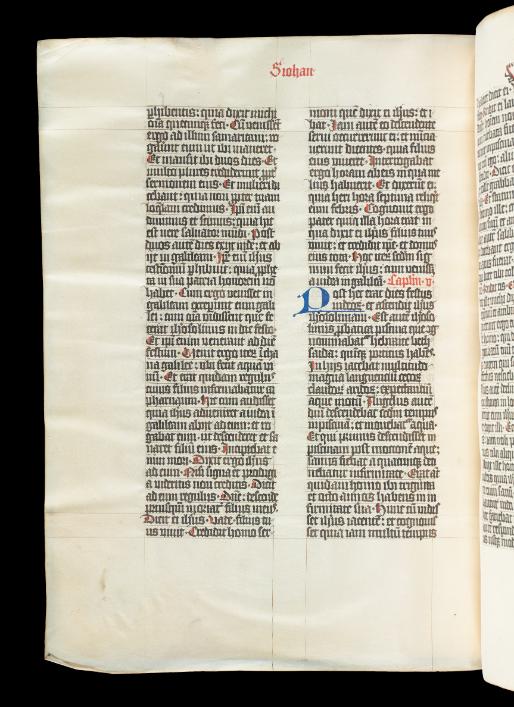 S iohan
phibentis: quia dixit michi
oīa quecumqꝫ feci. Cū venissēt
ergo ad illum samaritani: ro
gauerūt eum ut ibi maneret.
Et mansit ibi duos dies. Et
multo plures crediderunt ppt̄
sermonem eius. Et mulieri di
cebant: quia non ppter tuam
loquelam credimus. Ipi em̄ au
diuimus et scimus: quia hic
est vere saluator mūdi. Post
duos autē dies exijt inde: et ab
ijt in galileam. Ipē em̄ ihsus
testimoniū phibuit: quia ppheta
in sua patria honorem nō
habet. Cum ergo venisset in
galileam exceperūt eum gali
lei: cum oīa vidissent que fe
cerat iherosolimis in die festo.
Et ipi enim venerant ad diē
festum. Venit ergo iterū ī cha
na galilee: ubi fecit aquā vi
nū. Et erat quidam regulus
cuius filius infirmabatur in
pharnaum. Hic cum audisset
quia ihsus adueniret a iudea ī
galileam abijt ad eum: et ro
gabat eum ut descenderet et sa
naret filiū eius. Incipiebat em̄
mori. Dixit ergo ihsus
ad eum. Nisi signa et prodigia
videritis non creditis. Dicit
ad eum regulus. Dn̄e: descende
priusqꝫ moriat᷑ filius meus.
Dicit ei ihsus. Vade. filius tu
us viuit. Credidit homo ser
moni quē dixit ei ihsus: et i
bat. Iam autē eo descendente
serui occurrerunt ei: et nūcia
uerunt dicentes: quia filius
eius viueret. Interrogabat
ergo horam ab eis in qua me
lius habuerit. Et dixerūt ei:
quia heri hora septima reliqt
eum febris. Cognouit ergo
pater quia illa hora erat in
qua dixit ei ihsus filius tuus
viuit: et credidit ipe et domus
eius tota. Hoc iterū secūdū sig
num fecit ihsus: cum venisset
a iudea in galileā. Capłm v
Post hec erat dies festus
iudeoꝝ: et ascendit ihsus
iherosolimam. Est autē iheroso
limis pbatica piscina que cog
nominabat᷑ hebraice beth
saida: quinqꝫ porticus habēs.
In hijs iacebat multitudo
magna languentiū cecoꝝ
claudoꝝ aridoꝝ: expectantiū
aque motū. Angelus autē
dn̄i descendebat scdm tempus
in piscinā: et mouebat᷑ aqua.
Et qui primus descendisset in
piscinam post motionē aque:
sanus fiebat a quacunqꝫ de
tinebatur infirmitate. Erat āt
quidam homo ibi triginta
et octo annos habens in in
firmitate sua. Hunc cū vidis
set ihsus iacentē: et cognouis
set quia iam multū tempus